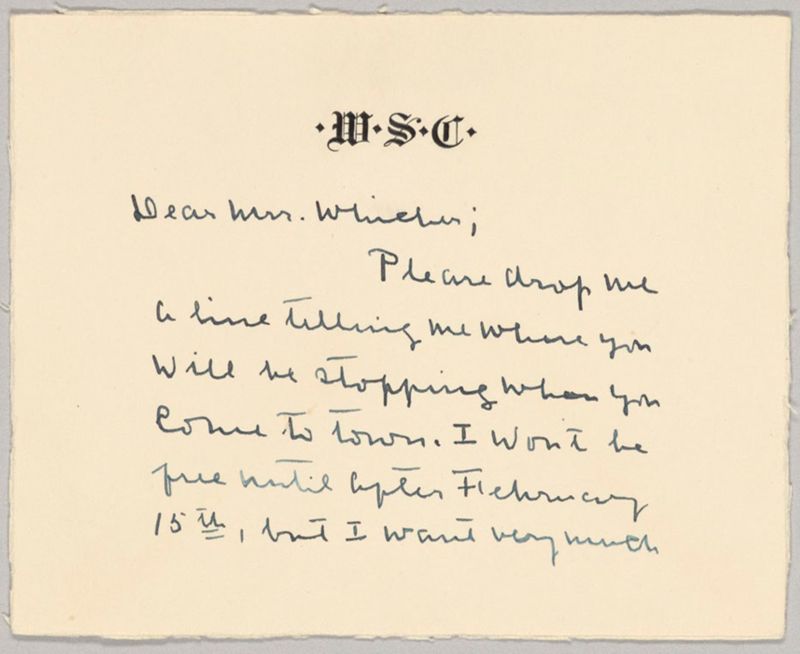 ·W·S·C·
Dear Mrs. Whicher;
Please drop me
a line telling me where you
will be stopping when you
come to town. I won't be
free until after February
15th, but I want very much